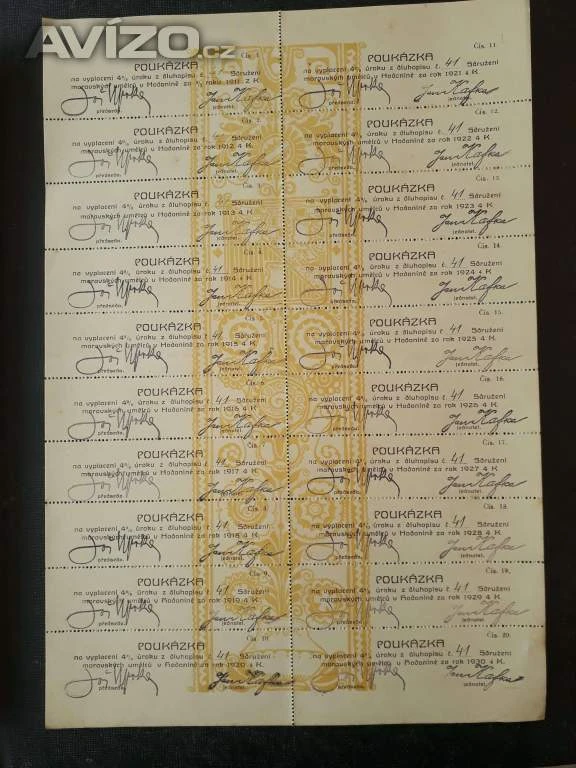 AVÍZO.cz
Čís. 1.
POUKÁZKA
na vyplacení 4% úroku z dluhopisu č. 41 Sdružení
moravských umělců v Hodoníně za rok 1911 4 K.
Jož Uprka Jan Kafka
předseda. jednatel.
Čís. 2.
POUKÁZKA
na vyplacení 4% úroku z dluhopisu č. 41 Sdružení
moravských umělců v Hodoníně za rok 1912 4 K.
Jož Uprka Jan Kafka
předseda. jednatel.
Čís. 3.
POUKÁZKA
na vyplacení 4% úroku z dluhopisu č. 41 Sdružení
moravských umělců v Hodoníně za rok 1913 4 K.
Jož Uprka Jan Kafka
předseda. jednatel.
Čís. 4.
POUKÁZKA
na vyplacení 4% úroku z dluhopisu č. 41 Sdružení
moravských umělců v Hodoníně za rok 1914 4 K.
Jož Uprka Jan Kafka
předseda. jednatel.
Čís. 5.
POUKÁZKA
na vyplacení 4% úroku z dluhopisu č. 41 Sdružení
moravských umělců v Hodoníně za rok 1915 4 K.
Jož Uprka Jan Kafka
předseda. jednatel.
Čís. 6.
POUKÁZKA
na vyplacení 4% úroku z dluhopisu č. 41 Sdružení
moravských umělců v Hodoníně za rok 1916 4 K.
Jož Uprka Jan Kafka
předseda. jednatel.
Čís. 7.
POUKÁZKA
na vyplacení 4% úroku z dluhopisu č. 41 Sdružení
moravských umělců v Hodoníně za rok 1917 4 K.
Jož Uprka Jan Kafka
předseda. jednatel.
Čís. 8.
POUKÁZKA
na vyplacení 4% úroku z dluhopisu č. 41 Sdružení
moravských umělců v Hodoníně za rok 1918 4 K.
Jož Uprka Jan Kafka
předseda. jednatel.
Čís. 9.
POUKÁZKA
na vyplacení 4% úroku z dluhopisu č. 41 Sdružení
moravských umělců v Hodoníně za rok 1919 4 K.
Jož Uprka Jan Kafka
předseda. jednatel.
Čís. 10.
POUKÁZKA
na vyplacení 4% úroku z dluhopisu č. 41 Sdružení
moravských umělců v Hodoníně za rok 1920 4 K.
Jož Uprka Jan Kafka
předseda. jednatel.
Čís. 11.
POUKÁZKA
na vyplacení 4% úroku z dluhopisu č. 41 Sdružení
moravských umělců v Hodoníně za rok 1921 4 K.
Jož Uprka Jan Kafka
předseda. jednatel.
Čís. 12.
POUKÁZKA
na vyplacení 4% úroku z dluhopisu č. 41 Sdružení
moravských umělců v Hodoníně za rok 1922 4 K.
Jož Uprka Jan Kafka
předseda. jednatel.
Čís. 13.
POUKÁZKA
na vyplacení 4% úroku z dluhopisu č. 41 Sdružení
moravských umělců v Hodoníně za rok 1923 4 K.
Jož Uprka Jan Kafka
předseda. jednatel.
Čís. 14.
POUKÁZKA
na vyplacení 4% úroku z dluhopisu č. 41 Sdružení
moravských umělců v Hodoníně za rok 1924 4 K.
Jož Uprka Jan Kafka
předseda. jednatel.
Čís. 15.
POUKÁZKA
na vyplacení 4% úroku z dluhopisu č. 41 Sdružení
moravských umělců v Hodoníně za rok 1925 4 K.
Jož Uprka Jan Kafka
předseda. jednatel.
Čís. 16.
POUKÁZKA
na vyplacení 4% úroku z dluhopisu č. 41 Sdružení
moravských umělců v Hodoníně za rok 1926 4 K.
Jož Uprka Jan Kafka
předseda. jednatel.
Čís. 17.
POUKÁZKA
na vyplacení 4% úroku z dluhopisu č. 41 Sdružení
moravských umělců v Hodoníně za rok 1927 4 K.
Jož Uprka Jan Kafka
předseda. jednatel.
Čís. 18.
POUKÁZKA
na vyplacení 4% úroku z dluhopisu č. 41 Sdružení
moravských umělců v Hodoníně za rok 1928 4 K.
Jož Uprka Jan Kafka
předseda. jednatel.
Čís. 19.
POUKÁZKA
na vyplacení 4% úroku z dluhopisu č. 41 Sdružení
moravských umělců v Hodoníně za rok 1929 4 K.
Jož Uprka Jan Kafka
předseda. jednatel.
Čís. 20.
POUKÁZKA
na vyplacení 4% úroku z dluhopisu č. 41 Sdružení
moravských umělců v Hodoníně za rok 1930 4 K.
Jož Uprka Jan Kafka
předseda. jednatel.